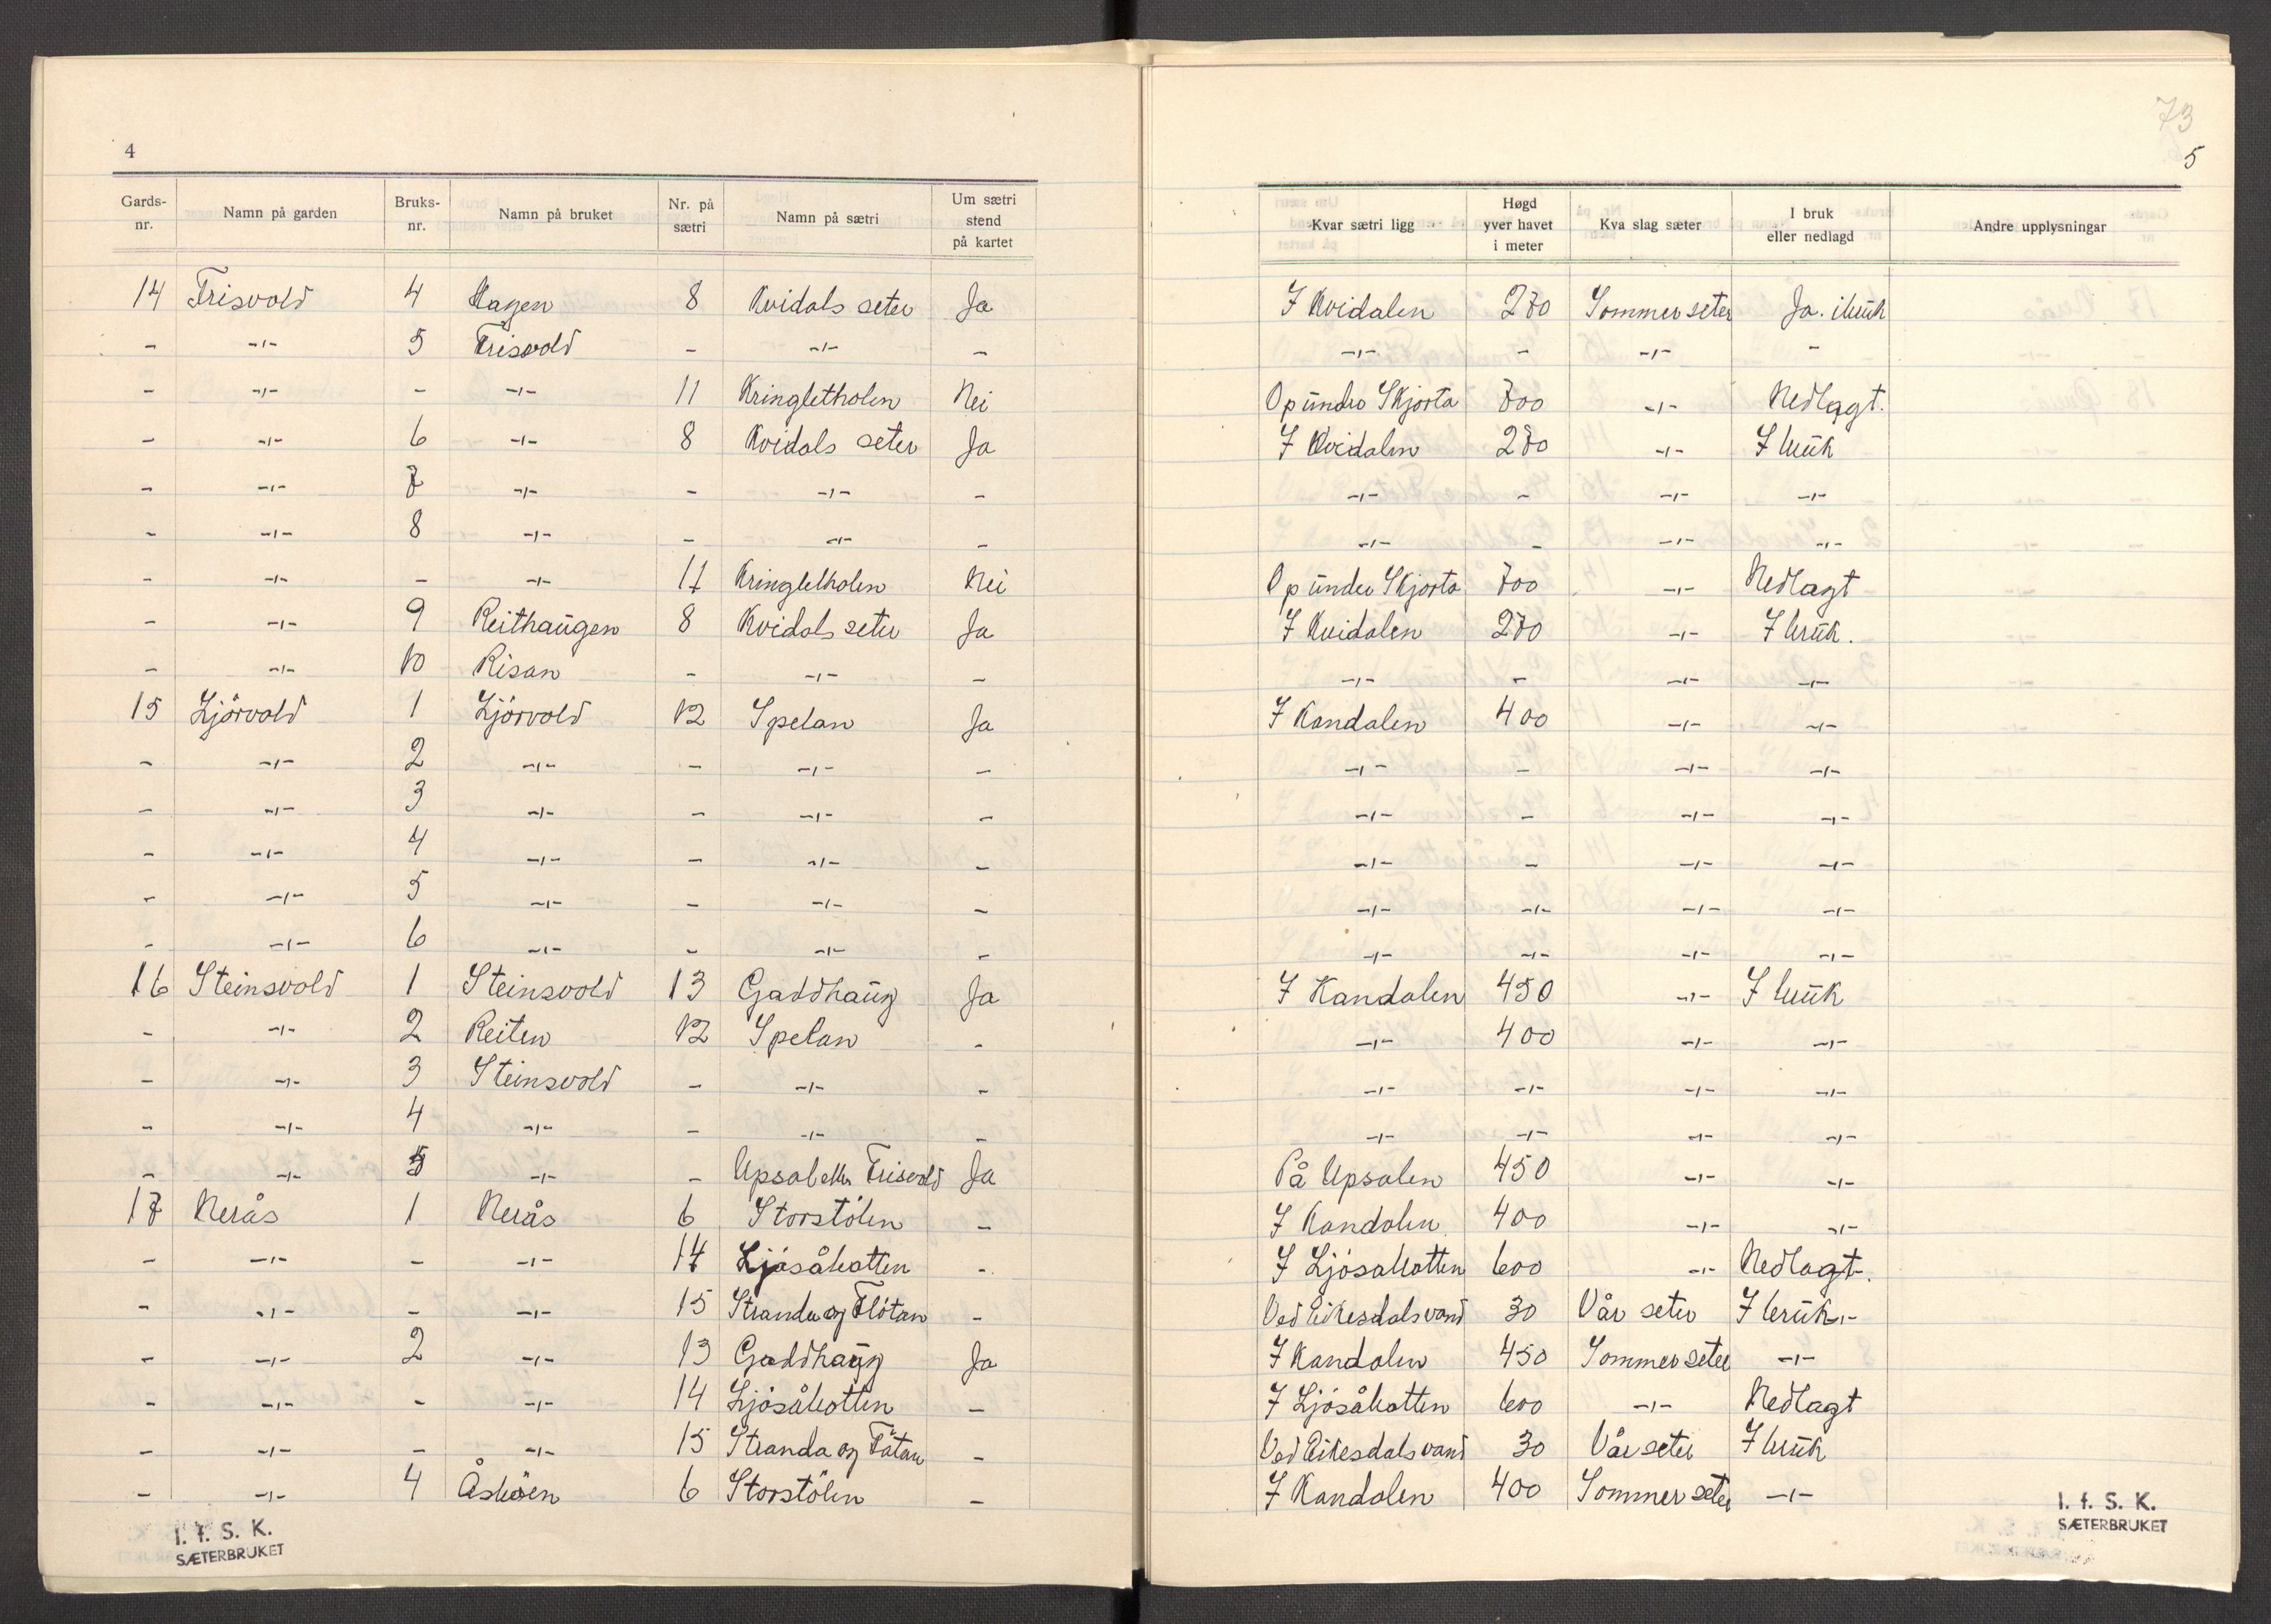 4
Gards-nr. | Namn på garden | Bruks-nr. | Namn på bruket | Nr. på sætri | Namn på sætri | Um sætri stend på kartet
14 | Frisvold | 4 | Hagen | 8 | Kvidals seter | Ja
- | -"- | 5 | Frisvold | - | -"- | -
- | -"- | - | -"- | 11 | Kringletholen | Nei
- | -"- | 6 | -"- | 8 | Kvidals seter | Ja
- | -"- | 7 | -"- | - | -"- | -
- | -"- | 8 | -"- | - | -"- | -
- | -"- | - | -"- | 11 | Kringletholen | Nei
- | -"- | 9 | Reithaugen | 8 | Kvidals seter | Ja
- | -"- | 10 | Risan | - | -"- | -
15 | Ljörvold | 1 | Ljörvold | 12 | Spelan | Ja
- | -"- | 2 | -"- | - | -"- | -
- | -"- | 3 | -"- | - | -"- | -
- | -"- | 4 | -"- | - | -"- | -
- | -"- | 5 | -"- | - | -"- | -
- | -"- | 6 | -"- | - | -"- | -
16 | Steinsvold | 1 | Steinsvold | 13 | Gaddhaug | Ja
- | -"- | 2 | Reiten | 12 | Spelan | -
- | -"- | 3 | Steinsvold | - | -"- | -
- | -"- | 4 | -"- | - | -"- | -
- | -"- | 5 | -"- | - | Upsal eller Frisvold | Ja
17 | Nerås | 1 | Nerås | 6 | Storstölen | -
- | -"- | - | -"- | 14 | Ljösåbotten | -
- | -"- | - | -"- | 15 | Stranda og Flötan | -
- | -"- | 2 | -"- | 13 | Gaddhaug | Ja
- | -"- | - | -"- | 14 | Ljösåbotten | -
- | -"- | - | -"- | 15 | Stranda og | -
- | -"- | 4 | Åsböen | 6 | Storstölen | -
I. f. S. K.
SÆTERBRUKET
73
5
Kvar sætri ligg | Høgd yver havet i meter | Kva slag sæter | I bruk eller nedlagd | Andre upplysningar
I Kvidalen | 270 | Sommer seter | Ja. i bruk
-"- | - | -"- | -
Op under Skjorta | 700 | -"- | Nedlagt.
I Kvidalen | 270 | -"- | I bruk
-"- | - | -"- | -"-
-"- | - | -"- | -"-
Op under Skjorta | 700 | -"- | Nedlagt
I Kvidalen | 270 | -"- | I bruk.
-"- | - | -"- | -"-
I Kandalen | 400 | -"- | -"-
-"- | - | -"- | -"-
-"- | - | -"- | -"-
-"- | - | -"- | -"-
-"- | -"- | -"- | -"-
-"- | -"- | -"- | -"-
I Kandalen | 450 | -"- | I bruk
-"- | 400 | -"- | -"-
-"- | -"- | -"- | -"-
-"- | -"- | -"- | -"-
På Upsalen | 450 | -"- | -"-
I Kandalen | 400 | -"- | -"-
I Ljösabotten | 600 | -"- | Nedlagt.
Ved Eikesdalsvand | 30 | Vår seter | I bruk -"-
I Kandalen | 450 | Sommer seter | -"-
I Ljösåbotten | 600 | -"- | Nedlagt
Ved Eikesdalsvand | 30 | Vår seter | I bruk
I Kandalen | 400 | Sommer seter | -"-
I. f. S. K.
SÆTERBRUKET